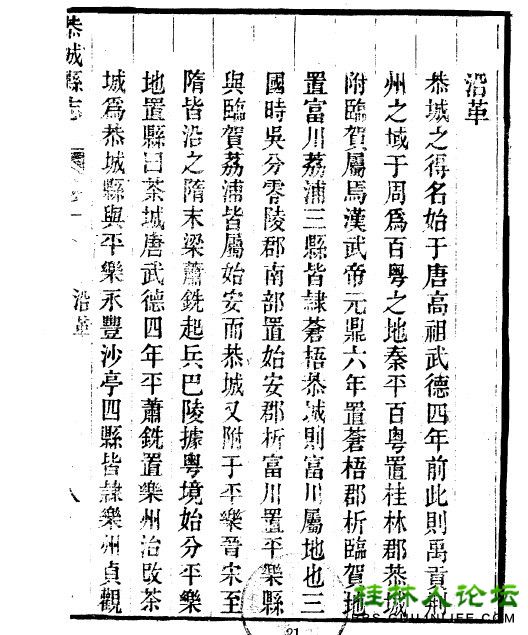 沿革
恭城之得名始于唐高祖武德四年前此則禹貢荆
州之域于周爲百粤之地秦平百粤置桂林郡恭城
附臨賀屬焉漢武帝元鼎六年置蒼梧郡析臨賀地
置富川荔浦三縣皆隸蒼梧恭城則富川屬地也三
國時吳分零陵郡南部置始安郡析富川置平樂縣
與臨賀荔浦皆屬始安而恭城又附于平樂晉宋至
隋皆沿之隋末梁蕭銑起兵巴陵據粤境始分平樂
地置縣曰茶城唐武德四年平蕭銑置樂州治改茶
城爲恭城縣與平樂永豐沙亭四縣皆隸樂州貞觀
恭城縣志
沿革
八
21
桂林人论坛
BBS.GUILINLIFE.COM